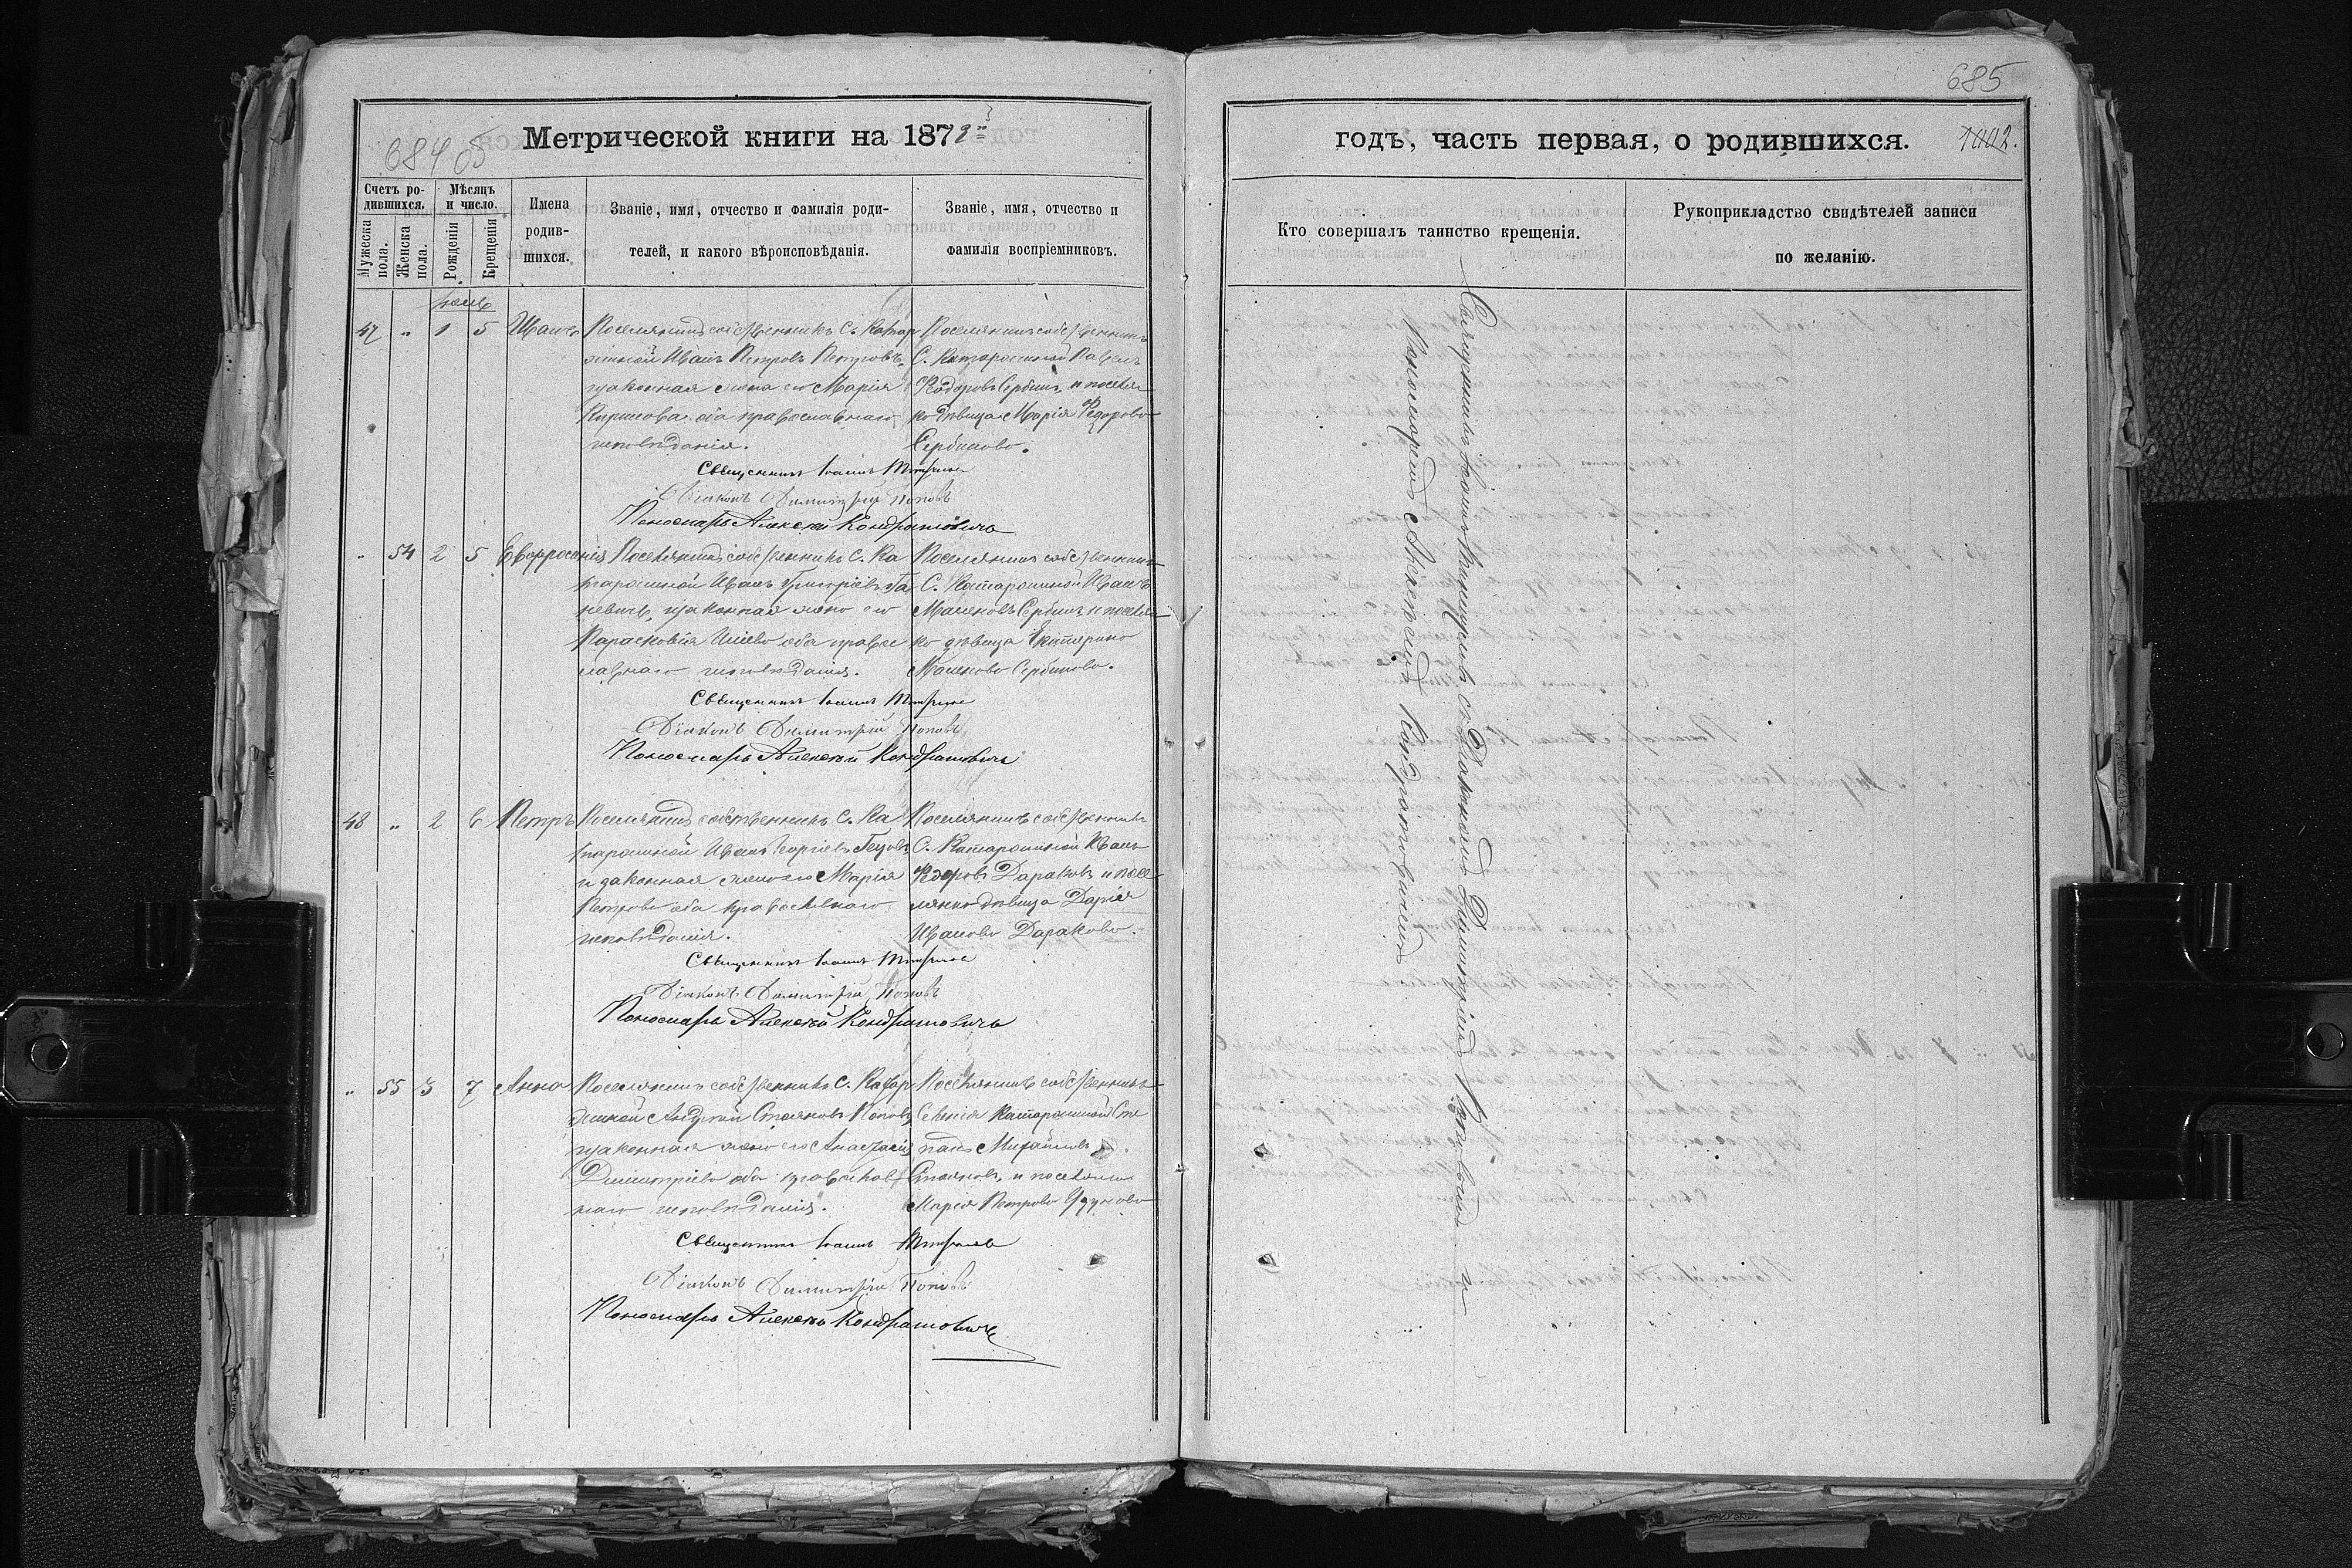 Метрической книги на 187
Счетъ ро-
дившихся.
Мѣсяцъ
и число.
Мужеска
пола.
Женска
пола.
Рожденія
Крещенія
Имена
родив-
шихся.
Званіе, имя, отчество и фамилія роди-
телей, и какого вѣроисповѣданія.
Званіе, имя, отчество и
фамилія воспріемниковъ.
47 " 1 5 Иванъ
Поселянинъ собственникъ С. Катар
жиной Иванъ Петровъ Петровъ,
и законная жена его Марія
Кирилова оба православнаго
исповѣданія.
Поселянинъ собственникъ
С. Катаржиной Павелъ
Федоровъ Сербинъ, и поселян
ка дѣвица Марія Федорова
Сербинова.
Священникъ Іоаннъ
Діаконъ Димитрій Поповъ
Пономарь Алексѣй Кондратовичъ
" 54 2 5 Евфросинія
Поселянинъ собственникъ С. Ка
таржиной Иванъ Григорьевъ Га
невъ, и законная жена его
Парасковія Иліева оба правос
лавнаго исповѣданія.
Поселянинъ собственникъ
С. Катаржиной Иванъ
Маленковъ Сербинъ и поселян
ка дѣвица Екатерина
Маленкова Сербинова.
Священникъ Іоаннъ
Діаконъ Димитрій Поповъ
Пономарь Алексѣй Кондратовичъ
48 " 2 6 Петръ
Поселянинъ собственникъ С. Ка
таржиной Иванъ Георгіевъ
и законная жена его Марія
Петрова оба православнаго
исповѣданія.
Поселянинъ собственникъ
С. Катаржиной Иванъ
Федоровъ Дараковъ и посе
лянка дѣвица Дарія
Иванова Даракова.
Священникъ Іоаннъ
Діаконъ Димитрій Поповъ
Пономарь Алексѣй Кондратовичъ
" 55 3 7 Анна
Поселянинъ собственникъ С. Катар
жиной Андрей Стояновъ Поповъ
и законная жена его Анастасія
Димитріева оба православ
наго исповѣданія.
Поселянинъ собственникъ
Селенія Катаржиной Сте
панъ Михайловъ
Стояновъ, и поселянка
Марія Петрова
Священникъ Іоаннъ
Діаконъ Димитрій Поповъ
Пономарь Алексѣй Кондратовичъ
685
годъ, часть первая, о родившихся.
1002.
Кто совершалъ таинство крещенія.
Рукоприкладство свидѣтелей записи
по желанію.
Священникъ Іоаннъ съ Діакономъ Димитріемъ Поповымъ и
Пономаремъ Алексѣемъ Кондратовичемъ